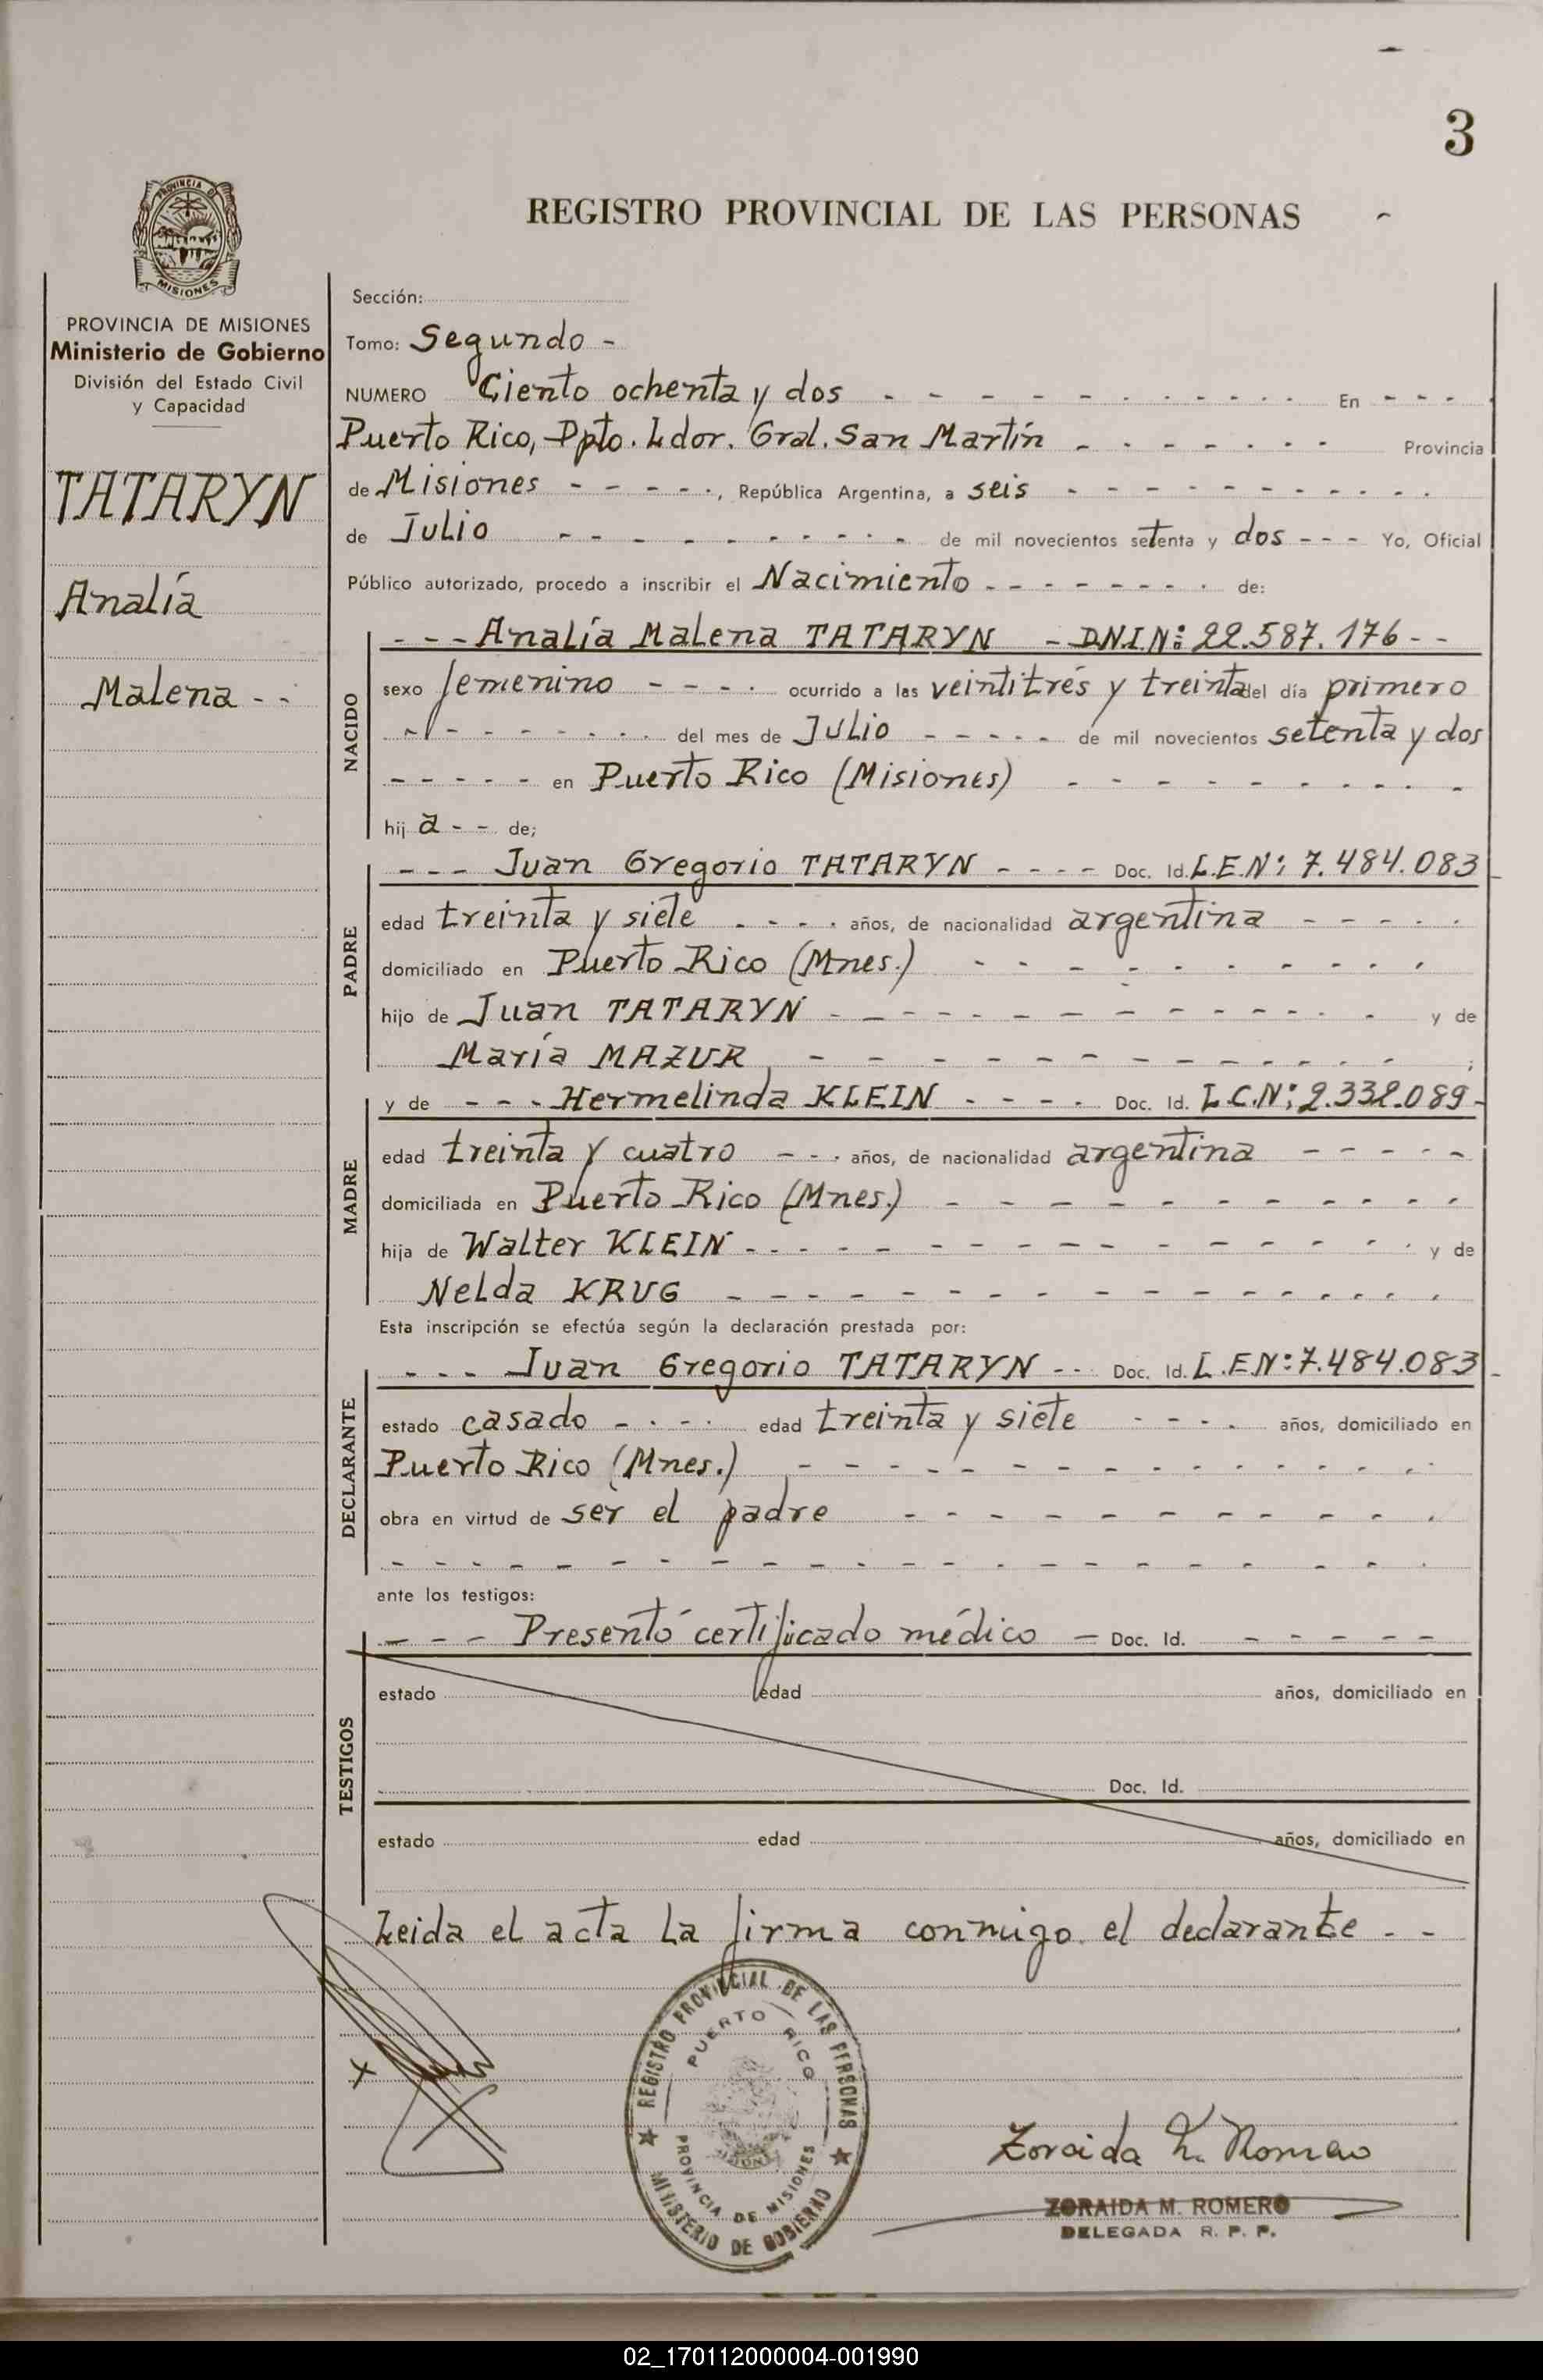 3
REGISTRO PROVINCIAL DE LAS PERSONAS
PROVINCIA DE MISIONES
Ministerio de Gobierno
División del Estado Civil
y Capacidad
TATARYN
Analía
Malena - -
Sección:
Tomo: Segundo -
NUMERO Ciento ochenta y dos - - - - - - - - - - En - - -
Puerto Rico, Dpto. Ldor. Gral. San Martín - - - - - - - Provincia
de Misiones - - - - -, República Argentina, a seis - - - - - - - - - -
de Julio - - - - - - - - - de mil novecientos setenta y dos - - - Yo, Oficial
Público autorizado, procedo a inscribir el Nacimiento - - - - - - - - de:
NACIDO
- - - Analía Malena TATARYN - DNI.Nº: 22.587.176 - -
sexo femenino - - - - ocurrido a las veintitrés y treinta del día primero
- - - - - - - - del mes de Julio - - - - - de mil novecientos setenta y dos
- - - - - en Puerto Rico (Misiones) - - - - - - - - -
hij a - - de;
PADRE
- - - Juan Gregorio TATARYN - - - - Doc. Id. L.E.Nº: 7.484.083
edad treinta y siete - - - - años, de nacionalidad argentina - - - - -
domiciliado en Puerto Rico (Mnes.) - - - - - - - - - -
hijo de Juan TATARYN - - - - - - - - - - - - - y de
María MAZUR - - - - - - - - - - - - - ;
MADRE
y de - - - Hermelinda KLEIN - - - - Doc. Id. L.C.Nº: 2.332.089 -
edad treinta y cuatro - - - años, de nacionalidad argentina - - - - -
domiciliada en Puerto Rico (Mnes.) - - - - - - - - - - -
hija de Walter KLEIN - - - - - - - - - - - - - - y de
Nelda KRUG - - - - - - - - - - - - - - - -
Esta inscripción se efectúa según la declaración prestada por:
DECLARANTE
- - - Juan Gregorio TATARYN - - Doc. Id. L.E.Nº: 7.484.083
estado casado - - - - edad treinta y siete - - - - años, domiciliado en
Puerto Rico (Mnes.) - - - - - - - - - - - - - -
obra en virtud de ser el padre - - - - - - - - - - -
- - - - - - - - - - - - - - - - - - - - - -
ante los testigos:
TESTIGOS
- - - Presentó certificado médico - Doc. Id. - - - - -
estado edad años, domiciliado en
Doc. Id.
estado edad años, domiciliado en
Leida el acta la firma conmigo el declarante - -
x
REGISTRO PROVINCIAL DE LAS PERSONAS
PUERTO RICO
PROVINCIA DE MISIONES
MINISTERIO DE GOBIERNO
Zoraida M. Romero
ZORAIDA M. ROMERO
DELEGADA R. P. P.
02_170112000004-001990